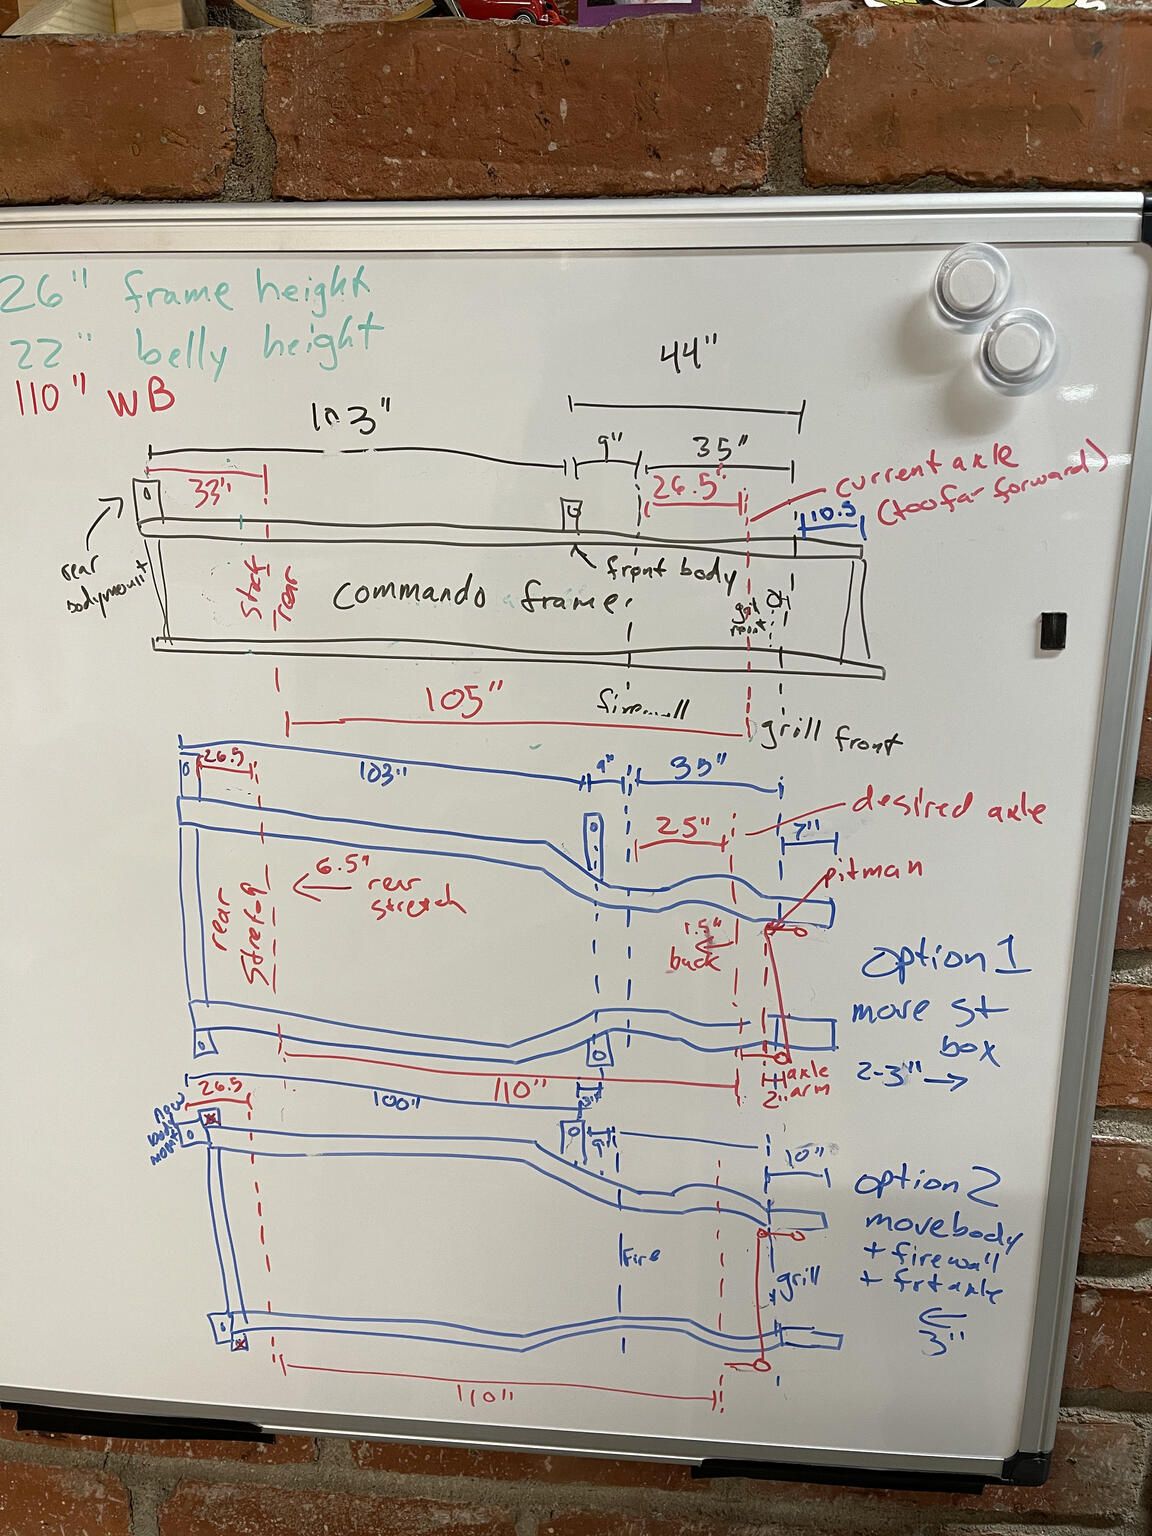 26" frame height
22" belly height
110" WB
44"
103"
9"
35"
33"
26.5"
current axle
(too far forward)
10.5
rear
bodymount
front body
stock
rear
commando frame
grill
mount
105"
firewall
grill front
26.5
103"
9"
35"
desired axle
25"
7"
pitman
6.5"
rear
stretch
rear
stretch
1.5"
back
option 1
move st
box
2-3" →
110"
axle
arm
2"
26.5
100"
new
body
mount
9"
10"
option 2
move body
+ firewall
+ frt axle
←
3"
Fire
grill
110"